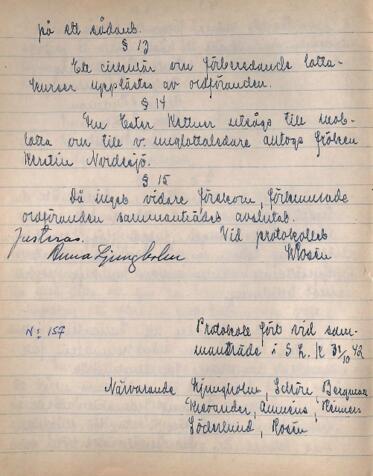 på ett sådant.
§ 13
Ett cirkulär om förberedande lotta-
kurser upplästes av ordföranden.
§ 14
Fru Ester Kettner utsågs till mob-
lotta och till v. unglottaledare antogs fröken
Kerstin Nordsjö.
§ 15
Då inget vidare förekom, förklarade
ordföranden sammanträdet avslutat.
Justeras. Vid protokollet
Anna Ljungholm K Rosén
No 157
Protokoll fört vid sam-
manträde i S L. K 31/10 42
Närvarande Ljungholm, Schöre, Bergman
Söderlund, Rosén